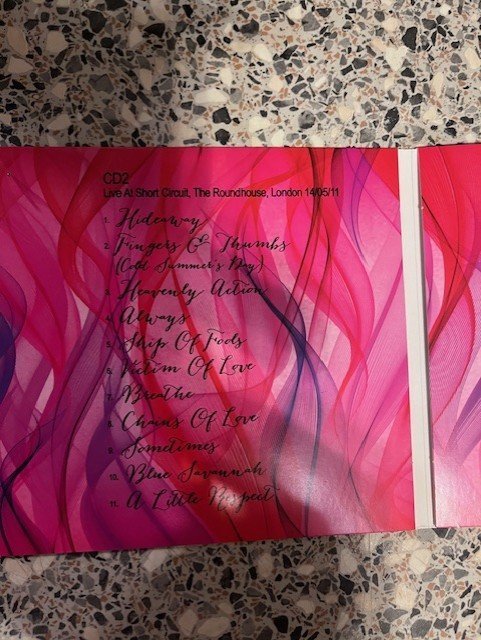 CD2
Live At Short Circuit, The Roundhouse, London 14/05/11
1. Hideaway
2. Fingers & Thumbs
(Cold Summer's Day)
3. Heavenly Action
4. Always
5. Ship Of Fools
6. Victim Of Love
7. Breathe
8. Chains Of Love
9. Sometimes
10. Blue Savannah
11. A Little Respect